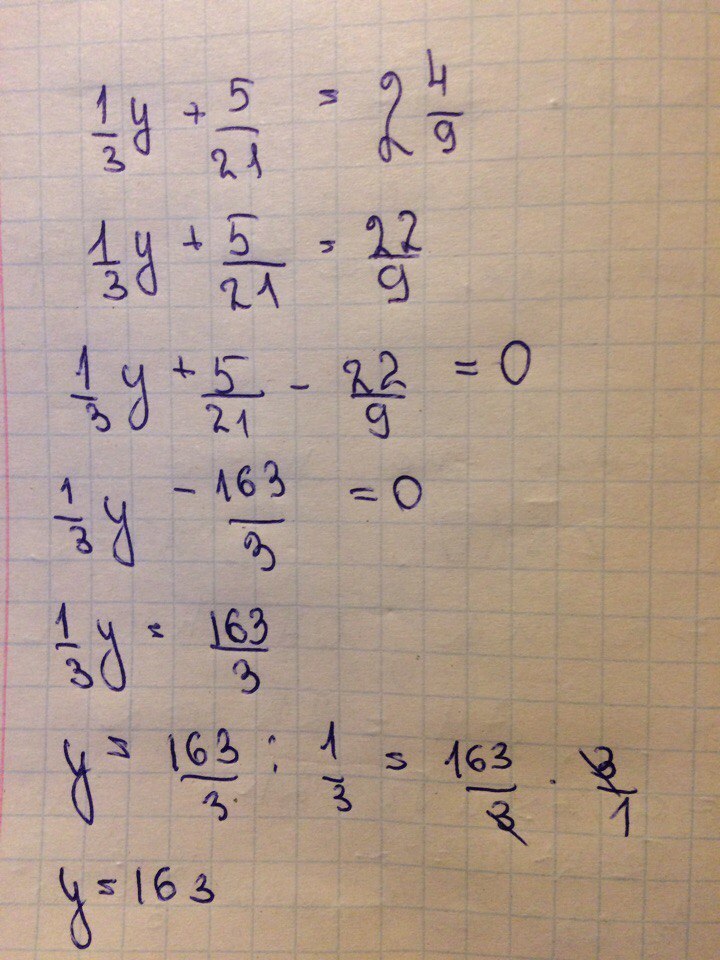 1/3 y + 5/21 = 2 4/9
1/3 y + 5/21 = 22/9
1/3 y + 5/21 - 22/9 = 0
1/3 y - 163/3 = 0
1/3 y = 163/3
y = 163/3 : 1/3 = 163/3 · 3/1
y = 163